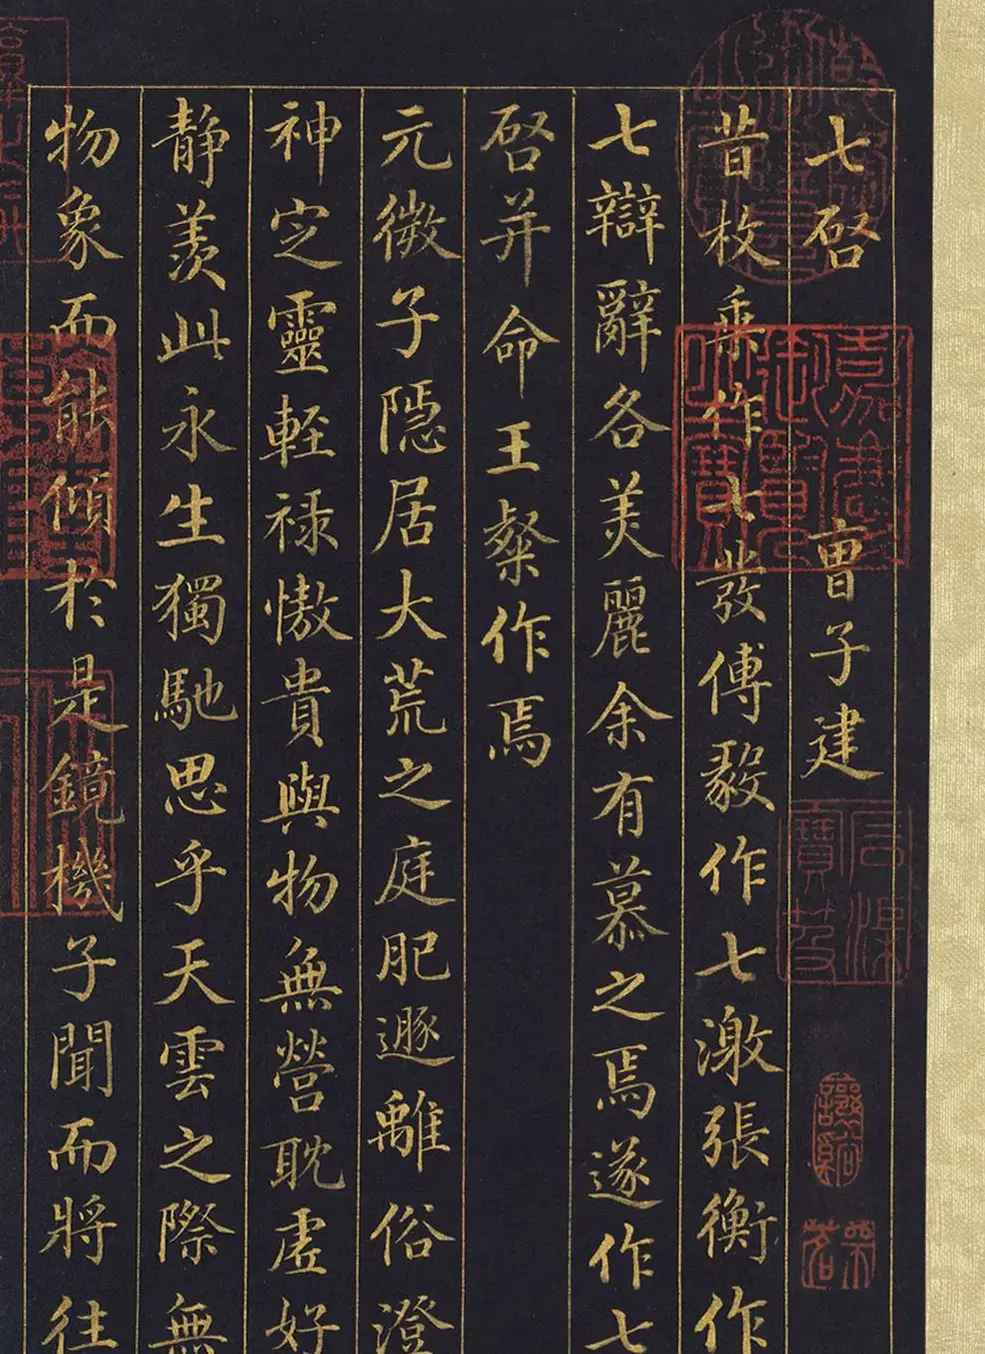 七啓 曹子建
昔枚乘作七發傅毅作七激張衡作
七辯辭各美麗余有慕之焉遂作七
啓并命王粲作焉
元微子隱居大荒之庭肥遯離俗澄
神定靈輕祿慠貴與物無營耽虛好
靜羨此永生獨馳思乎天雲之際無
物象而能傾於是鏡機子聞而將往
嘉慶御覽之寶
石渠寶笈